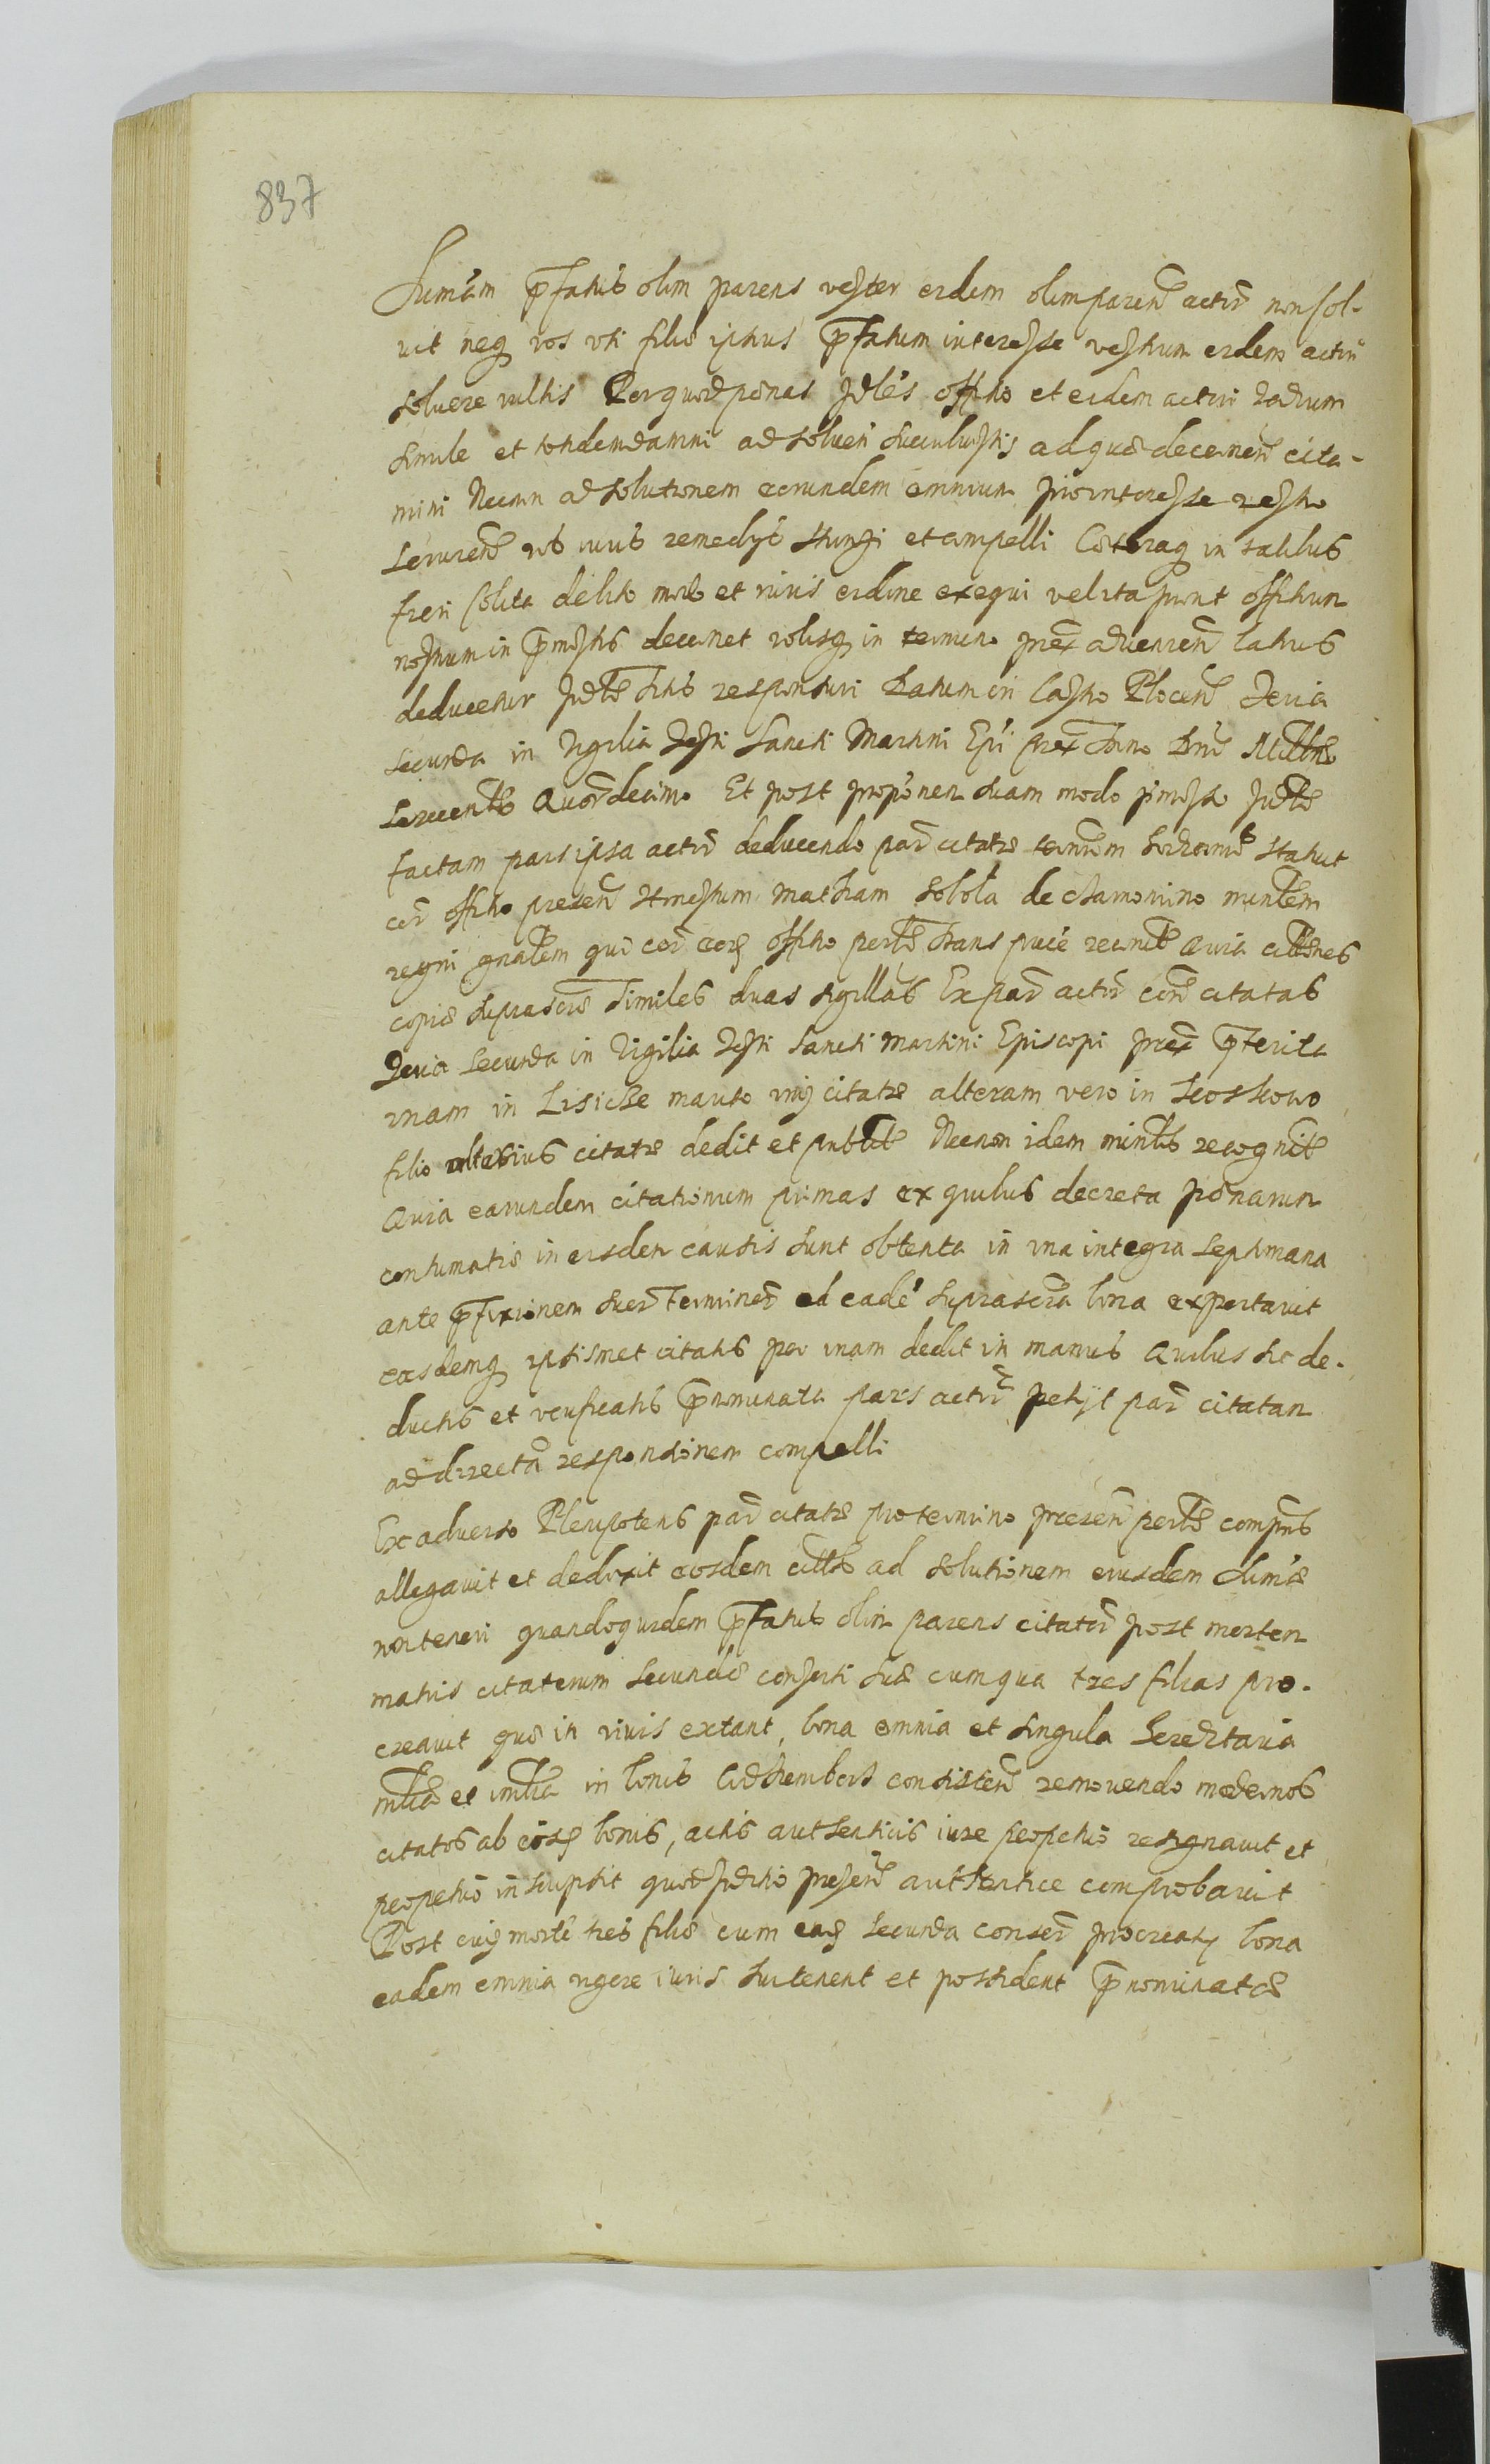 837
Sumam pfatus olim parens vester eidem olim paren actor non sol-
uit neq vos vti filio ipsius pfatum interesse vestrum eidem actori
soluere vultis Per quod penas Jdles offitio et eidem actori
simile et totidem damni ad soluen succubuistis ad quod decernen cita-
mini Necnon ad solutionem eorundem omnium pro interesse vestro
vos iuris remedys stringi et compelli Coeteraq in talibus
fieri solita debito modo et iuris ordine exequi velitaprout offitium
nostrum in pmissis decernet vobisq in termino prox aduenien latius
deducetur Judtr sitis responsuri Datum in Castro Plocen Feria
secunda in Vigilia Festi Sancti Martini Epi prox Anno Dni Millmo
Sexcentmo Quardecimo Et post proponen suam modo pmisso Judtr
factam pars ipsa actor deducendo par citatae terminum hodiernu statuit
cor offitio presen Honestum Mathiam Sobota de ministem
regni gnalem qui cor eodem offitio persltr stans puce recnuit Quia cittnes
copie suprascrae similes duas sigillas Ex par actor contra citatas
Feria Secunda in Vigilia Festi Sancti Martini Episcopi prox pterita
vnam in Lisicze marito vnius citatae alteram vero in
filio vlterius citatae dedit et publit Necnon idem ministr recognit
Quia earundem citationum primas ex quibus decreta penarum
contumatie in eisdem causis sunt obtenta in vna integra septimana
ante pfixionem suor Terminor ad eade suprascra bona exportauit
easdemq ipsismet citatis per vnam dedit in manus Quibus sic de-
ductis et verificatis pnominata pars actor petyt par citatan
ad directa responsionem compelli
Ex aduerso Plenipotens par citatae pro termino presen persltr compns
allegauit et deduxit eosdem cittos ad solutionem eiusdem sumae
non teneri quandoquidem pfatus olim parens citator post mortem
matris citatorum secundae consorti suae cum qua tres filias pro-
creauit quae in viuis extant, bona omnia et singula hereditaria
mblia et imblia in bonis consisten remouendo modernos
citatos ab eisdem bonis, actis authenticis iure perpetuo resignauit et
perpetuo inscripsit quod Juditio presen authentice comprobauit
Post cuiq morte tres filiae cum eadem secunda consor procreatae bona
eadem omnia vigore iuris sui tenent et possident pnominatae